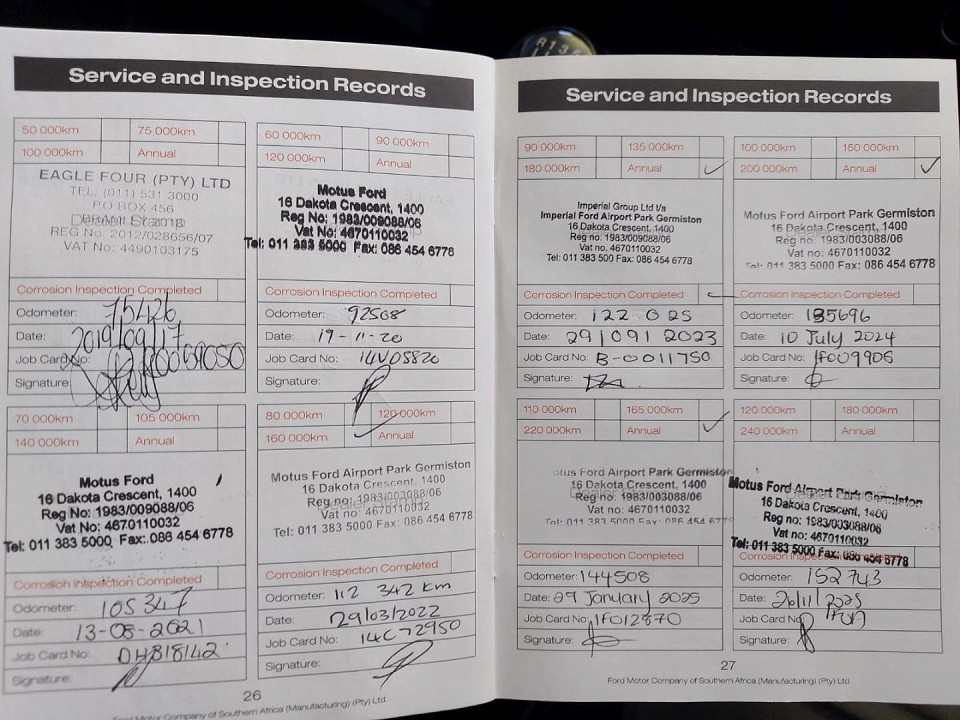 R135
Service and Inspection Records
50 000km 75 000km
100 000km Annual
EAGLE FOUR (PTY) LTD
TEL: (011) 531 3000
PO BOX 456
Dealer Stamp
REG No: 2012/028656/07
VAT No: 4490103175
Corrosion Inspection Completed
Odometer: 75426
Date: 2019/09/17
Job Card No:
Signature:
60 000km 90 000km
120 000km Annual
Motus Ford
16 Dakota Crescent, 1400
Reg No: 1983/009088/06
Vat No: 4670110032
Tel: 011 383 5000 Fax: 086 454 6778
Corrosion Inspection Completed
Odometer: 92568
Date: 19-11-20
Job Card No: 14V05820
Signature:
70 000km 105 000km
140 000km Annual
Motus Ford
16 Dakota Crescent, 1400
Reg No: 1983/009088/06
Vat No: 4670110032
Tel: 011 383 5000, Fax:.086 454 6778
Corrosion Inhpection Completed
Odometer: 105 347
Date: 13-08-2021
Job Card No: DH818142
Signature:
80 000km 120 000km
160 000km Annual
Motus Ford Airport Park Germiston
16 Dakota Crescent, 1400
Reg no: 1983/003088/06
Vat no: 4670110032
Tel: 011 383 5000 Fax: 086 454 6778
Corrosion Inspection Completed
Odometer: 112 342 km
Date: 29/03/2022
Job Card No: 14C72950
Signature:
26
Ford Motor Company of Southern Africa (Manufacturing) (Pty) Ltd
Service and Inspection Records
90 000km 135 000km
180 000km Annual ✓
Imperial Group Ltd t/a
Imperial Ford Airport Park Germiston
16 Dakota Crescent, 1400
Reg no: 1983/009088/06
Vat no: 4670110032
Tel: 011 383 500 Fax: 086 454 6778
Corrosion Inspection Completed
Odometer: 122 025
Date: 29/09/2023
Job Card No: B-0011750
Signature:
100 000km 150 000km
200 000km Annual ✓
Motus Ford Airport Park Germiston
16 Dakota Crescent, 1400
Reg no: 1983/003088/06
Vat no: 4670110032
Tel: 011 383 5000 Fax: 086 454 6778
Corrosion Inspection Completed
Odometer: 135696
Date: 10 July 2024
Job Card No: 1F009906
Signature:
110 000km 165 000km
220 000km Annual ✓
otus Ford Airport Park Germiston
16 Dakota Crescent, 1400
Reg no: 1983/003088/06
Vat no: 4670110032
Tel: 011 383 5000 Fax: 086 454 677
Corrosion Inspection Completed
Odometer: 144508
Date: 29 January 2025
Job Card No: 1F012870
Signature:
120 000km 180 000km
240 000km Annual
Motus Ford Airport Park Germiston
16 Dakota Crescent, 1400
Reg no: 1983/003088/06
Vat no: 4670110032
Tel: 011 383 5000 Fax: 086 454 6778
Corrosion Inspection Completed
Odometer: 152 743
Date: 26/11/2025
Job Card No:
Signature:
27
Ford Motor Company of Southern Africa (Manufacturing) (Pty) Ltd